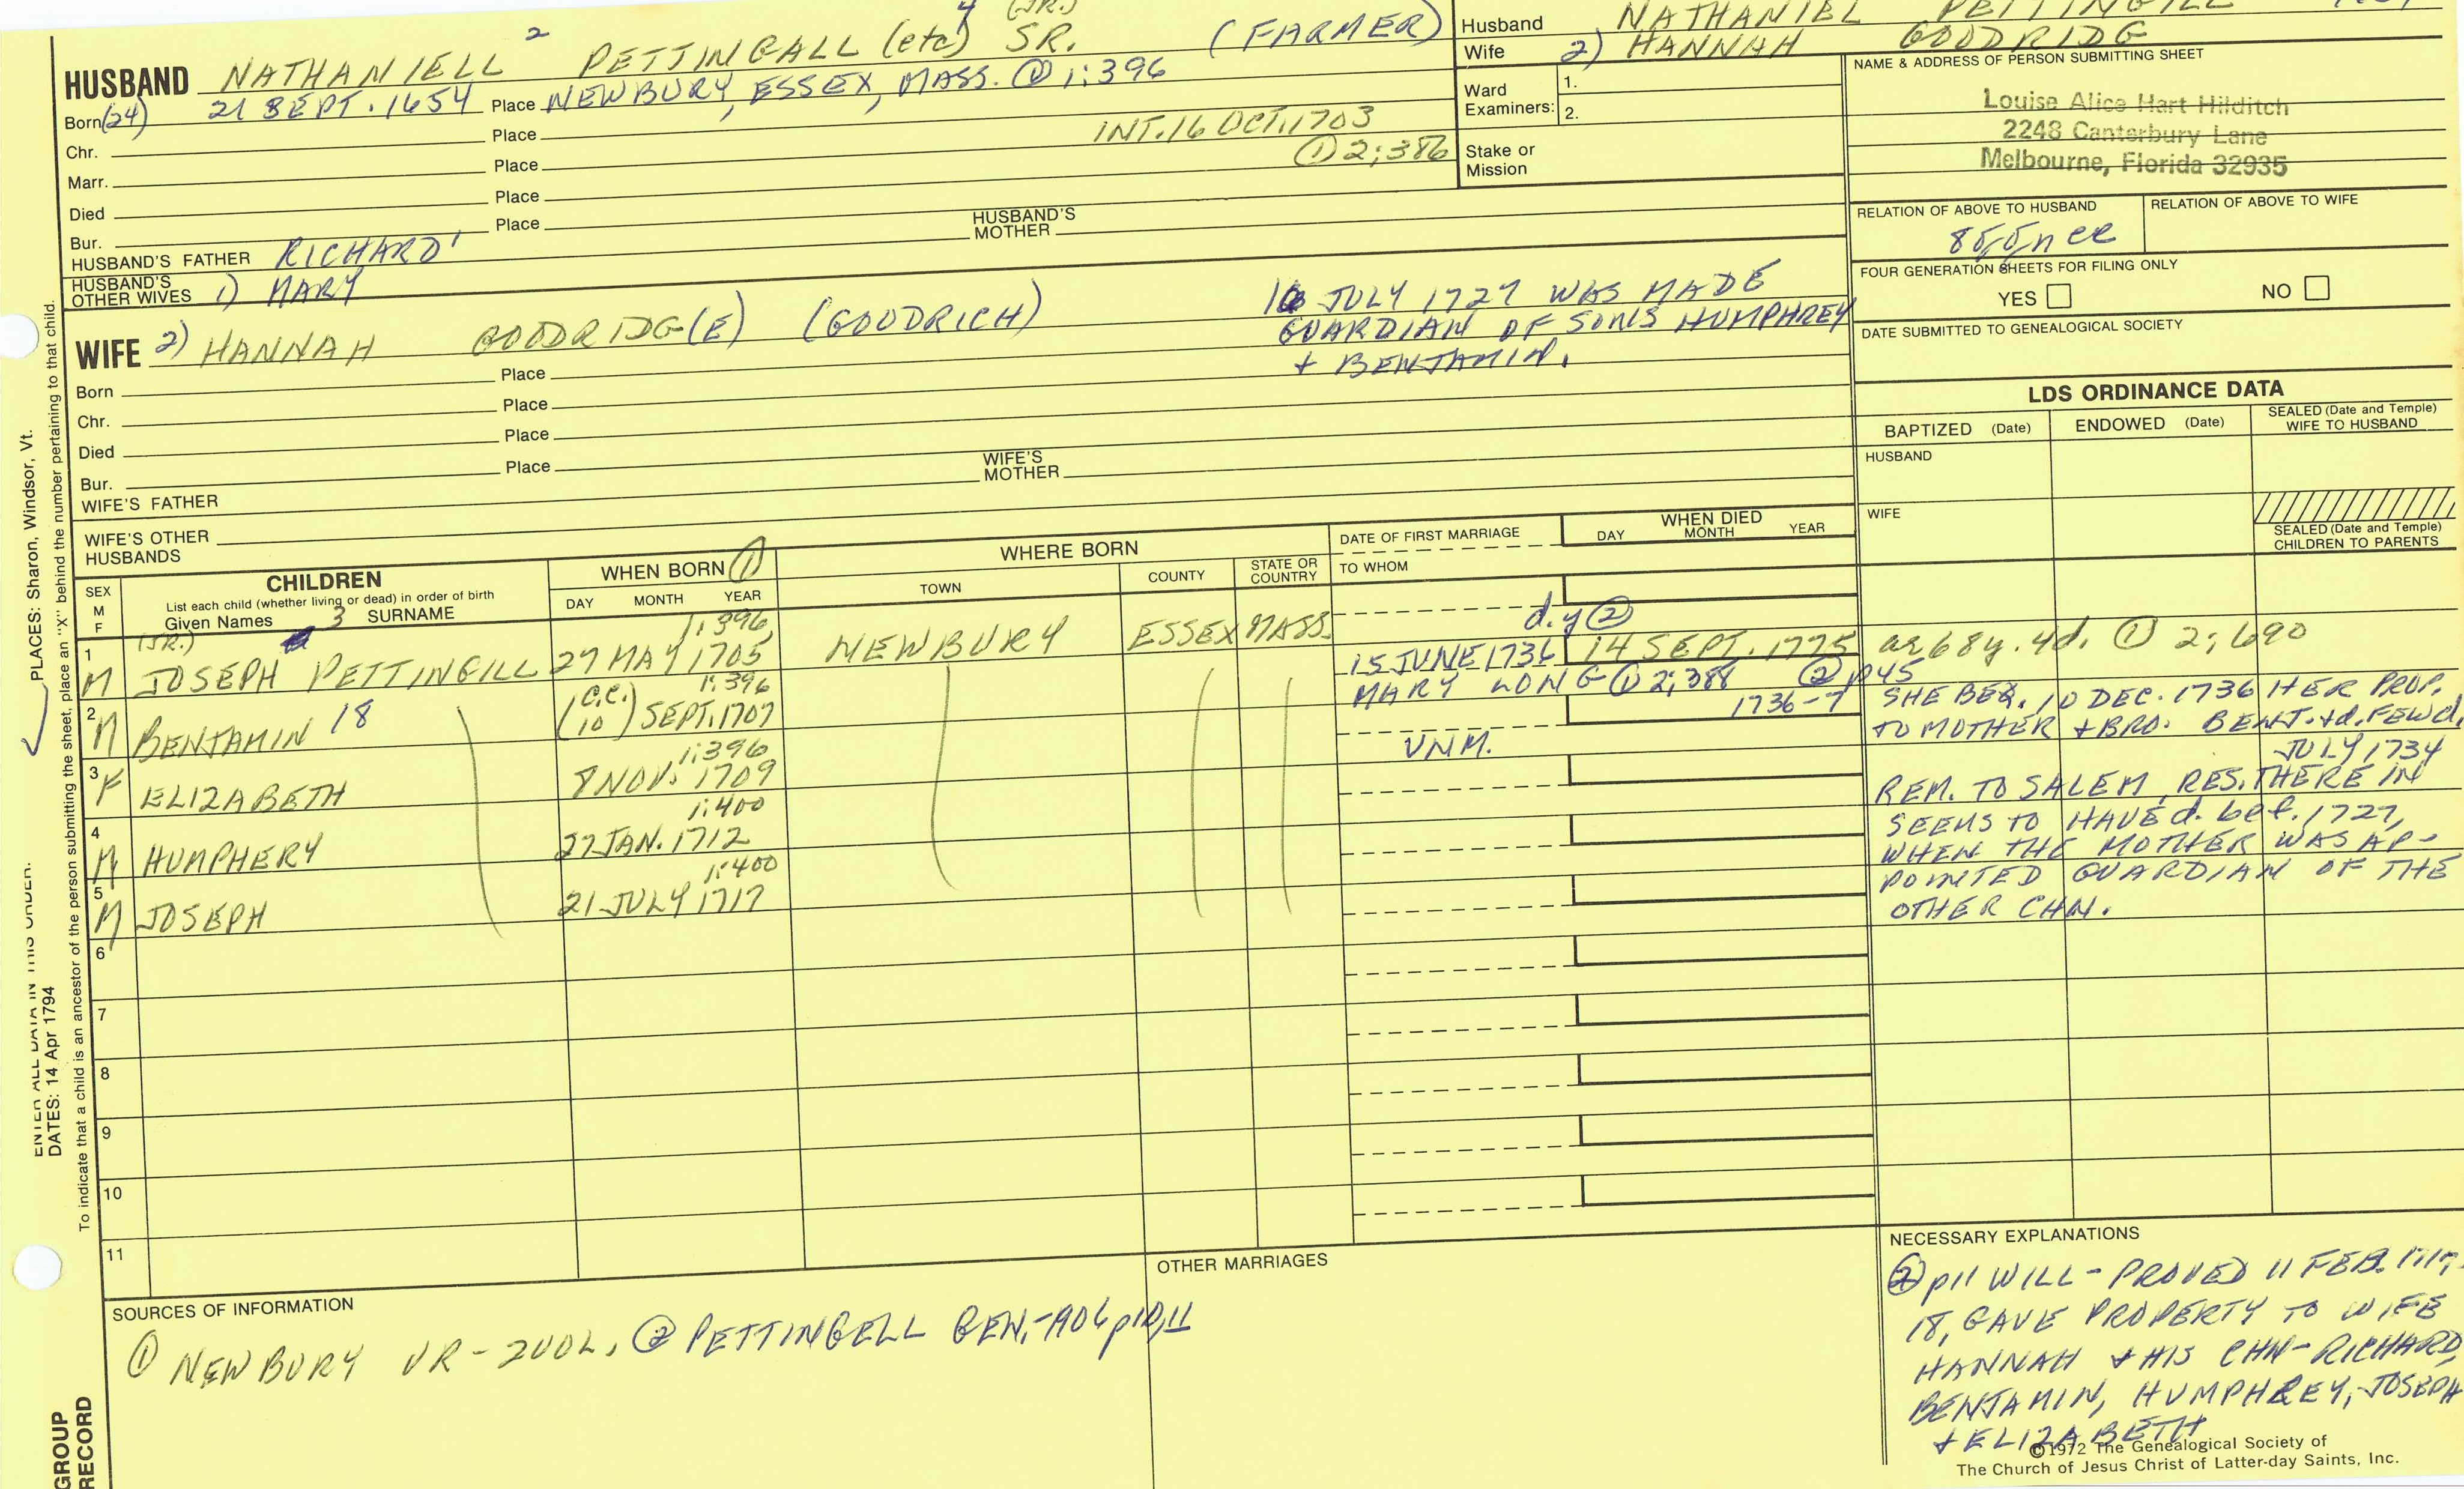 4 (JR.)
HUSBAND NATHANIELL 2 PETTINGALL (etc) SR. (FARMER)
Born (24) 21 SEPT. 1654 Place NEWBURY, ESSEX, MASS. ① 1:396
Chr. Place INT. 16 OCT. 1703
Marr. Place ① 2:386
Died Place
Bur. Place
HUSBAND'S FATHER RICHARD 1 HUSBAND'S MOTHER
HUSBAND'S OTHER WIVES 1) MARY
WIFE 2) HANNAH GOODRIDG(E) (GOODRICH)
JULY 1727 WAS MADE
GUARDIAN OF SONS HUMPHREY
+ BENJAMIN.
Born Place
Chr. Place
Died Place
Bur. Place
WIFE'S FATHER WIFE'S MOTHER
WIFE'S OTHER HUSBANDS
Husband NATHANIEL PETTINGILL
Wife 2) HANNAH GOODRIDG
Ward Examiners: 1.
2.
Stake or Mission
NAME & ADDRESS OF PERSON SUBMITTING SHEET
Louise Alice Hart Hilditch
2248 Canterbury Lane
Melbourne, Florida 32935
RELATION OF ABOVE TO HUSBAND RELATION OF ABOVE TO WIFE
FOUR GENERATION SHEETS FOR FILING ONLY
YES NO
DATE SUBMITTED TO GENEALOGICAL SOCIETY
LDS ORDINANCE DATA
BAPTIZED (Date) ENDOWED (Date) SEALED (Date and Temple) WIFE TO HUSBAND
HUSBAND
WIFE
SEALED (Date and Temple) CHILDREN TO PARENTS
SEX M F
CHILDREN
List each child (whether living or dead) in order of birth
Given Names 3 SURNAME
WHEN BORN ①
DAY MONTH YEAR
WHERE BORN
TOWN COUNTY STATE OR COUNTRY
DATE OF FIRST MARRIAGE
TO WHOM
WHEN DIED
DAY MONTH YEAR
(JR.) 1:396 d.y ②
1 M JOSEPH PETTINGILL 27 MAY 1705 NEWBURY ESSEX MASS.
15 JUNE 1736 14 SEPT. 1775 ae 68y. 4d. ① 2:690
1:396 MARY LONG ① 2:388 ② p45
2 M BENJAMIN 18 (C.C. 10) SEPT. 1707
1736-7 SHE BEQ. 10 DEC. 1736 HER PROP.
TO MOTHER + BRO. BENJ. + d. FEW d.
1:396 UNM.
3 F ELIZABETH 8 NOV. 1709
JULY 1734
REM. TO SALEM, RES. THERE IN
1:400
4 M HUMPHERY 27 JAN. 1712
SEEMS TO HAVE d. bef. 1727,
WHEN THE MOTHER WAS AP-
POINTED GUARDIAN OF THE
OTHER CHN.
1:400
5 M JOSEPH 21 JULY 1717
6
7
8
9
10
11
SOURCES OF INFORMATION
① NEWBURY VR - 2VOL, ② PETTINGELL GEN, -1906 p10, 11
OTHER MARRIAGES
NECESSARY EXPLANATIONS
② p11 WILL - PROVED 11 FEB.
18, GAVE PROPERTY TO WIFE
HANNAH + HIS CHN - RICHARD,
BENJAMIN, HUMPHREY, JOSEPH
+ ELIZABETH
©1972 The Genealogical Society of
The Church of Jesus Christ of Latter-day Saints, Inc.
PLACES: Sharon, Windsor, Vt.
ENTER ALL DATA IN THIS ORDER:
DATES: 14 Apr 1794
To indicate that a child is an ancestor of the person submitting the sheet, place an "X" behind the number pertaining to that child.
GROUP
RECORD